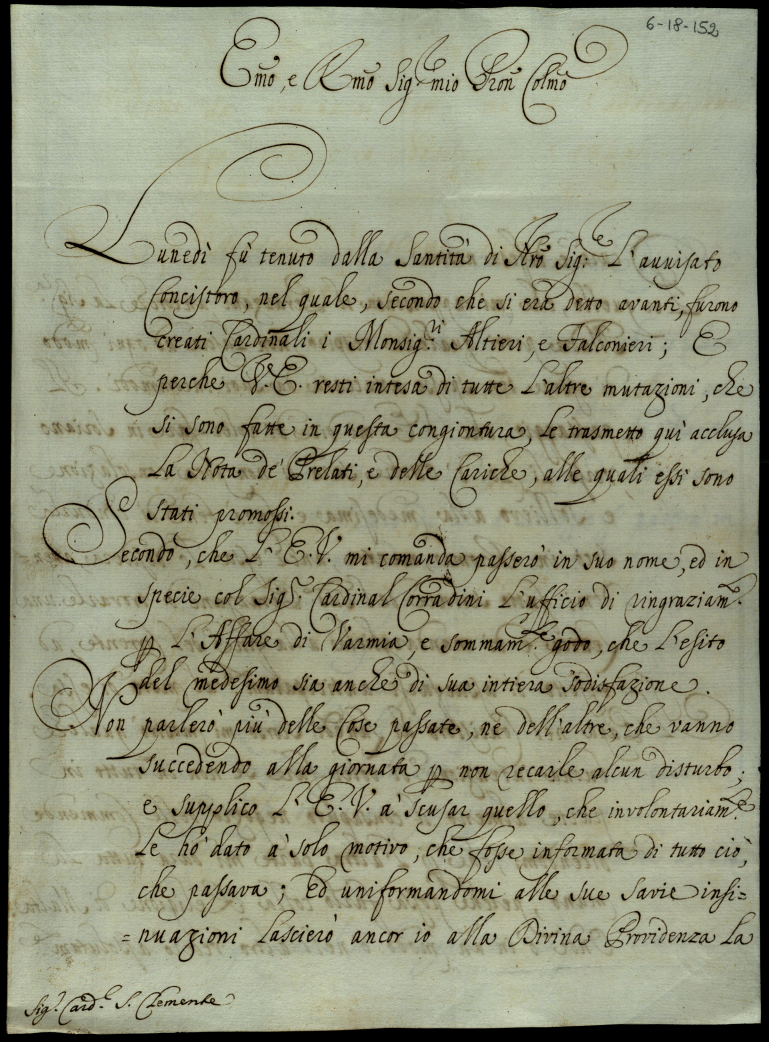 6-18-152
Emo, e Rmo Sigre mio Pron Colmo
Lunedì fù tenuto dalla Santità di Nro Sigre: L'auuisato
Concistoro, nel quale, secondo che si era detto avanti, furono
creati Cardinali i Monsig.ri Altieri, e Falconieri; E
perche V.E. resti intesa di tutte L'altre mutazioni, che
si sono fatte in questa congiontura, Le trasmetto quì acclusa
La Nota de' Prelati, e delle Cariche, alle quali essi sono
stati promossi.
Secondo, che L'E.V. mi comanda passerò in suo nome, ed in
specie col Sig.r Cardinal Corradini L'ufficio di ringraziam.to
ꝑ L'Affare di Varmia, e sommam.te godo, che L'esito
del medesimo sia anche di sua intiera sodisfazione.
Non parlerò più delle Cose passate, ne dell'altre, che vanno
succedendo alla giornata ꝑ non recarle alcun disturbo;
e supplico L'E.V. à scusar quello, che involontariam.te
Le hò dato à solo motivo, che fosse informata di tutto ciò,
che passava; Ed uniformandomi alle sue savie insi=
=nuazioni Lascierò ancor io alla Divina Providenza La
Sig.r Card.l S. Clemente